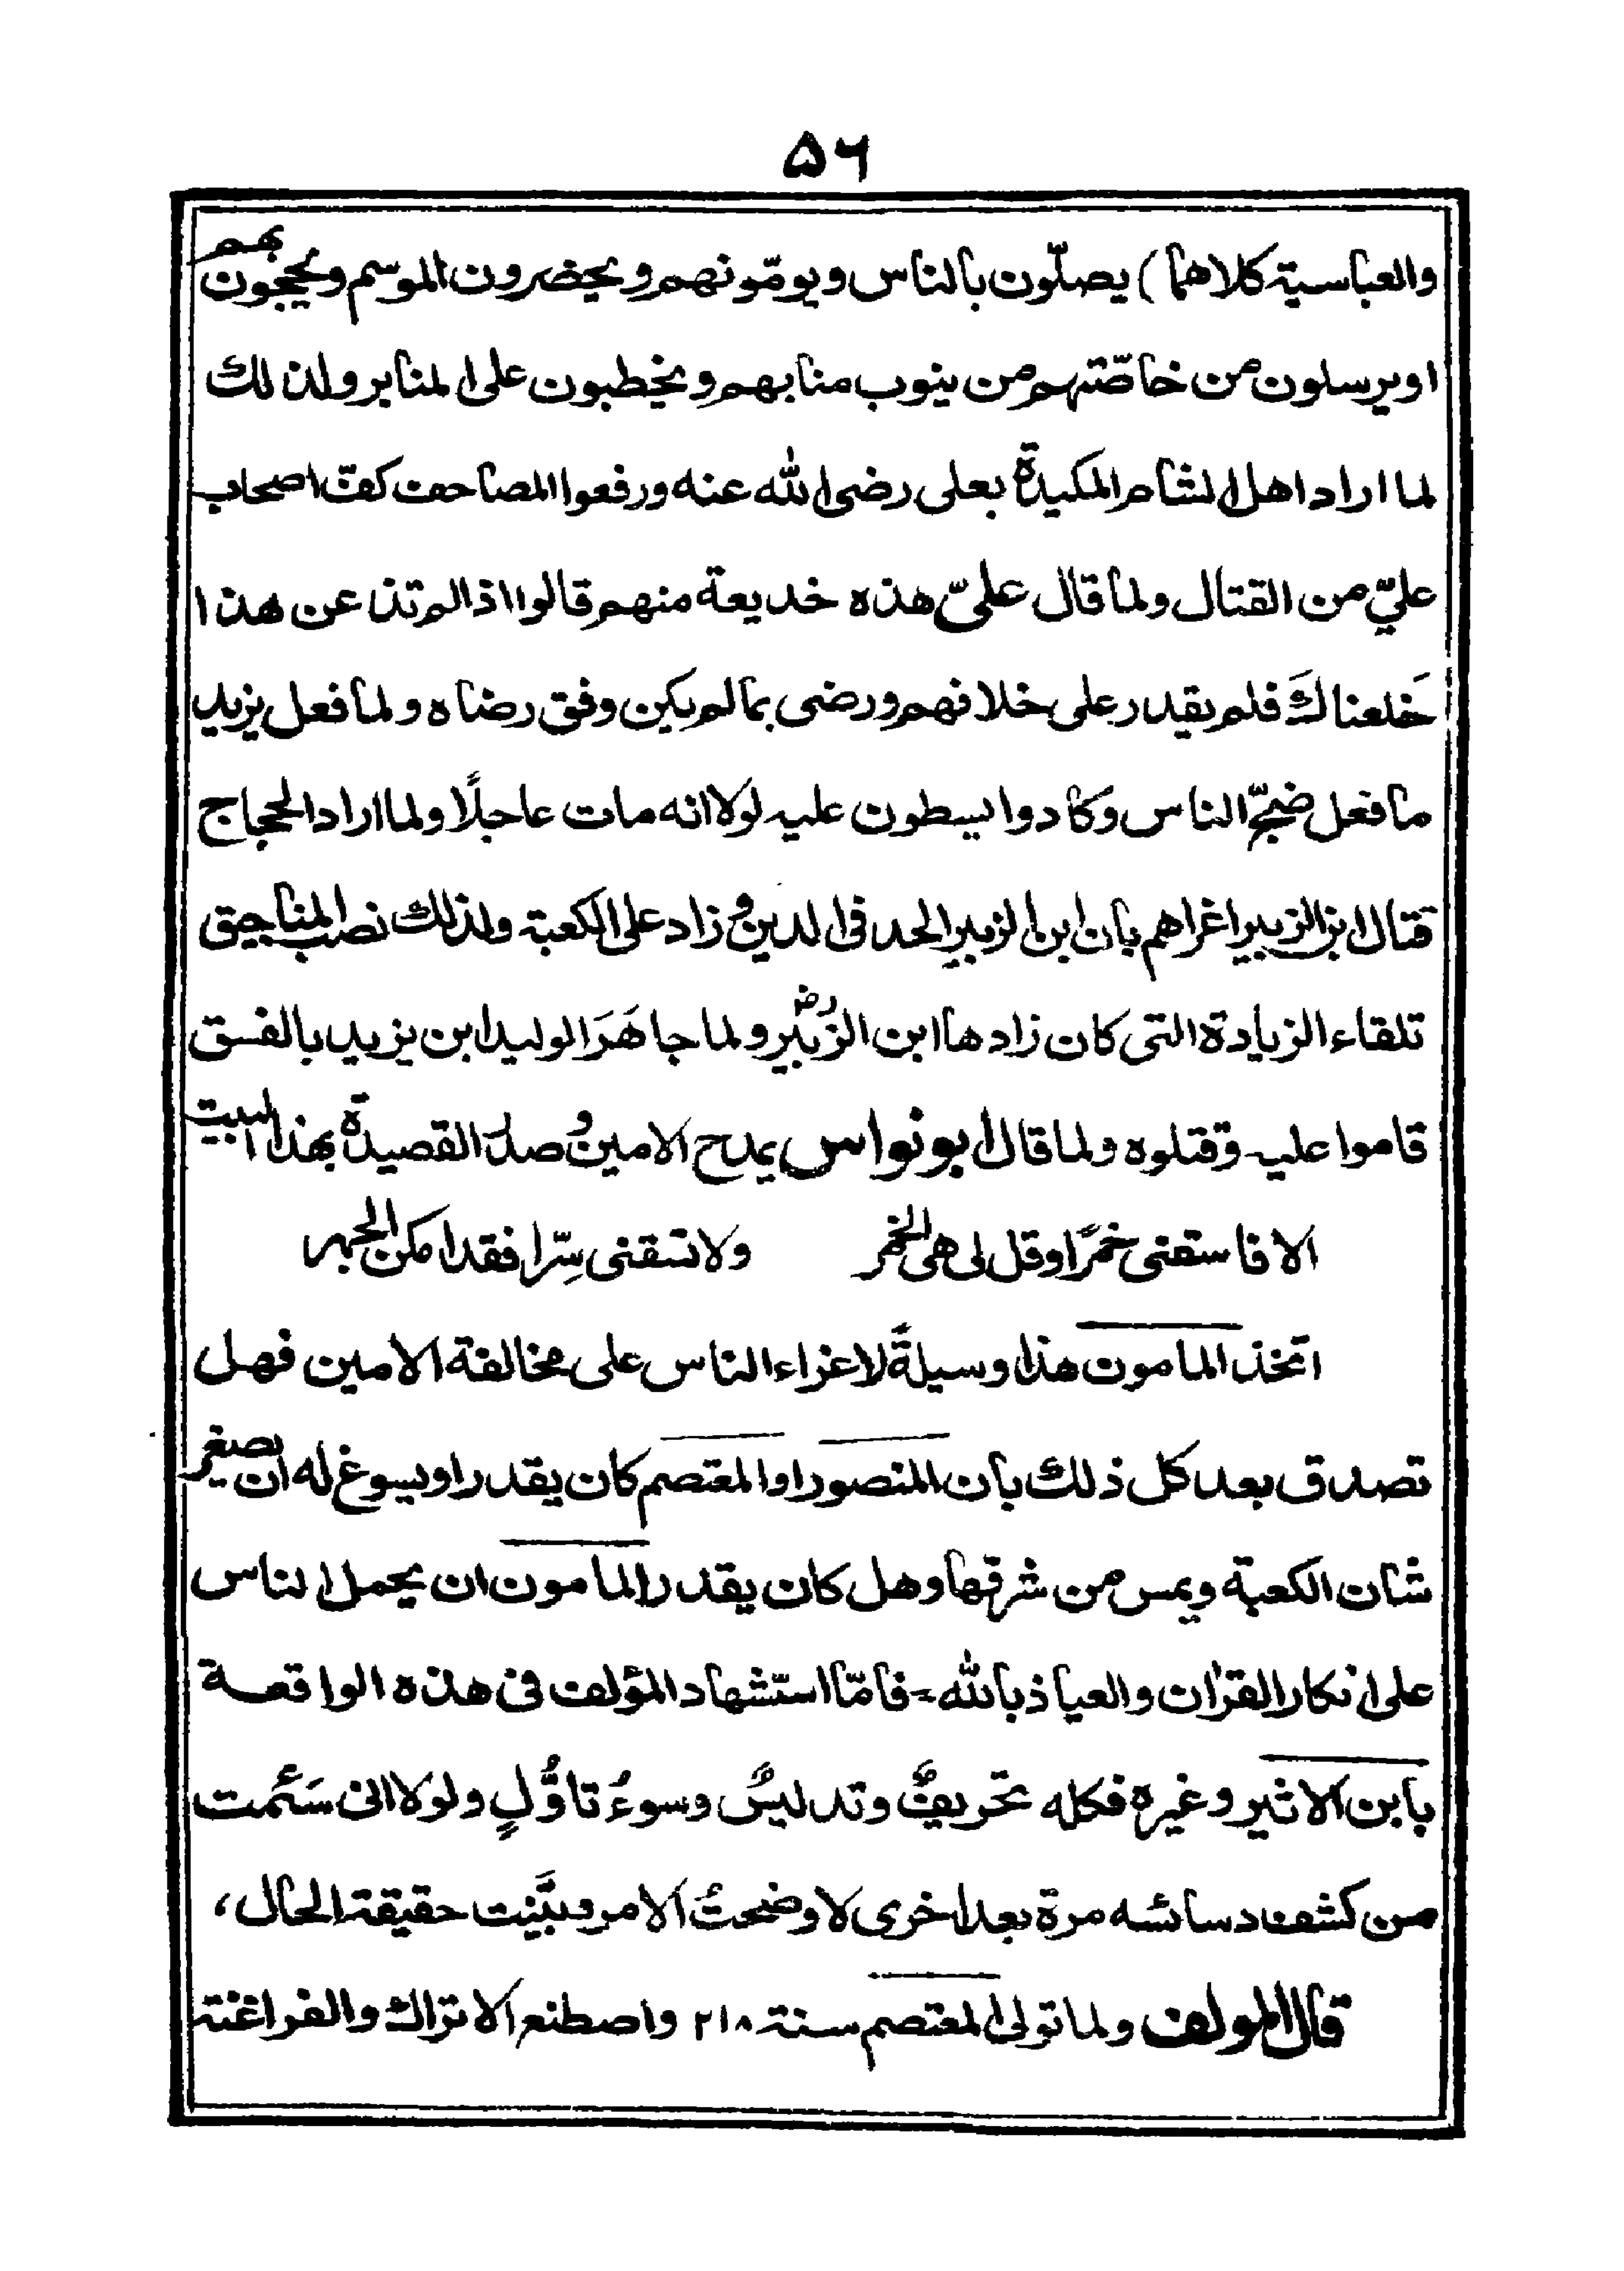 ۵۶
والعباسية كلاهما) يصلّون بالناس ويومّونهم ويحضرون الموسم ويحجون بهم
او يرسلون من خاصّتهم من ينوب منابهم ويخطبون على المنابر ولذلك
لما اراد اهل الشام المكيدة بعلى رضى الله عنه ورفعوا المصاحف كفّ اصحاب
عليّ من القتال ولما قال علىّ هذه خديعة منهم قالوا اذا لم تذ عن هذا
خَلعناكَ فلم يقدر على خلافهم ورضى بمالم يكن وفق رضاه ولما فعل يزيد
ما فعل ضجّ الناس وكادوا يسطون عليه لولا انه مات عاجلًا ولما اراد الحجاج
قتال ابن الزبير اغراهم بان ابن الزبير الحد فى الدين وزاد على الكعبة ولذلك نصب المناجيق
تلقاء الزيادة التى كان زادها ابن الزُبير رض ولما جاهَرَ الوليد ابن يزيد بالفسق
قاموا عليه وقتلوه ولما قال ابو نواس يمدح الامين وصدر القصيدة بهذا البيت
الا فاسقنى خمرًا وقل لى هى الخمر ولا تسقنى سِرّا فقد امكن الجهر
اتخذ المامون هذا وسيلةً لاغراء الناس على مخالفة الامين فهل
تصدق بعد كل ذلك بان المنصور او المعتصم كان يقدر او يسوغ له ان يصغر
شان الكعبة ويمس من شرفها وهل كان يقدر المامون ان يحمل الناس
على انكار القرٰان والعياذ بالله - فامّا استشهاد المؤلف فى هذه الواقعة
بابن الاثير وغيره فكله تحريفٌ وتدليسٌ وسوءُ تاوُّلٍ ولولا انى سَئمت
من كشف دسائسه مرة بعد اخرى لاوضحتُ الامر وبيَّنت حقيقة الحال،
قال المولف ولما تولى المعتصم سنة ۲۱۸ واصطنع الاتراك والفراغنة